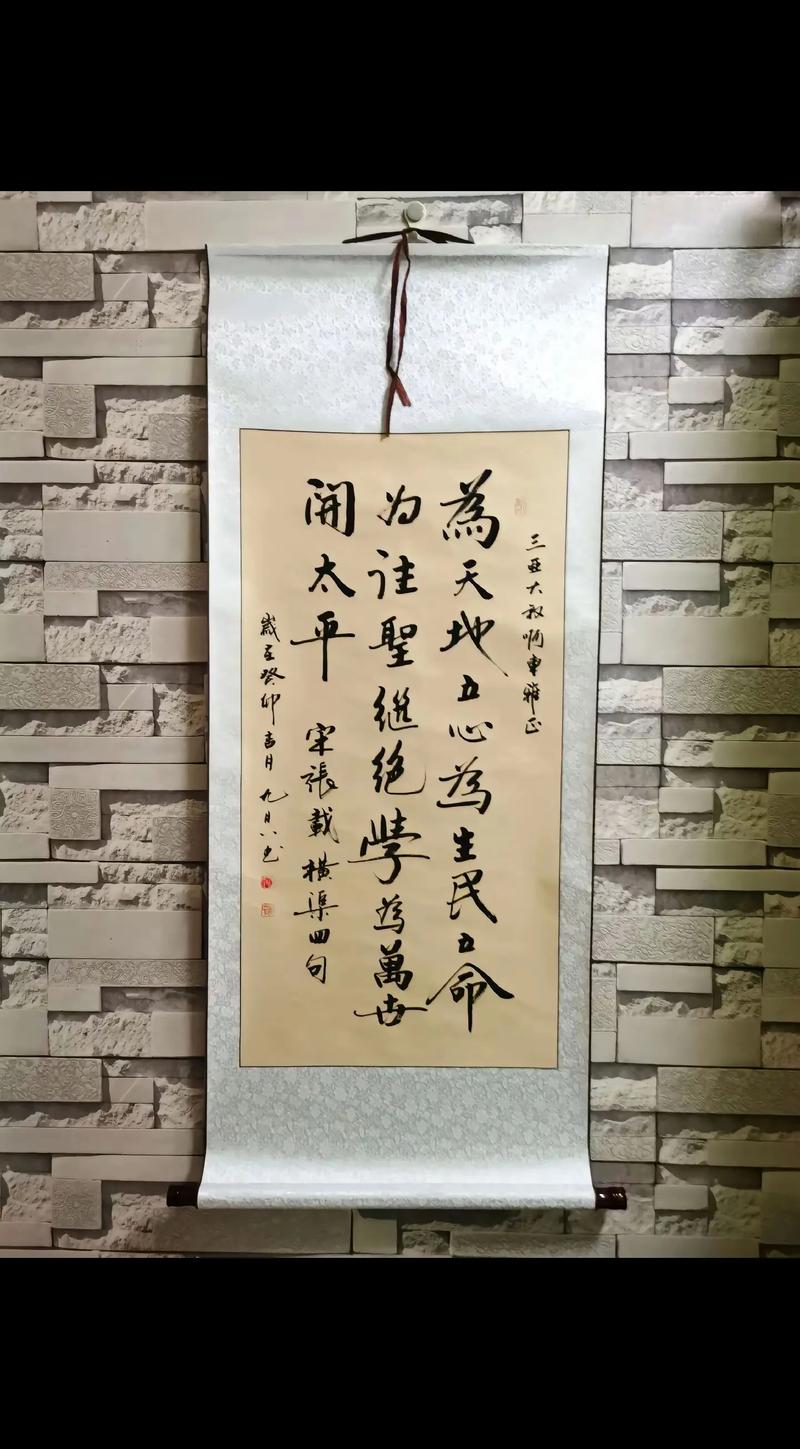 三亚大叔啊东雅正
為天地立心為生民立命
为往聖继绝學為萬世
開太平 宋張載橫渠四句
歲在癸卯吉月 九月八书